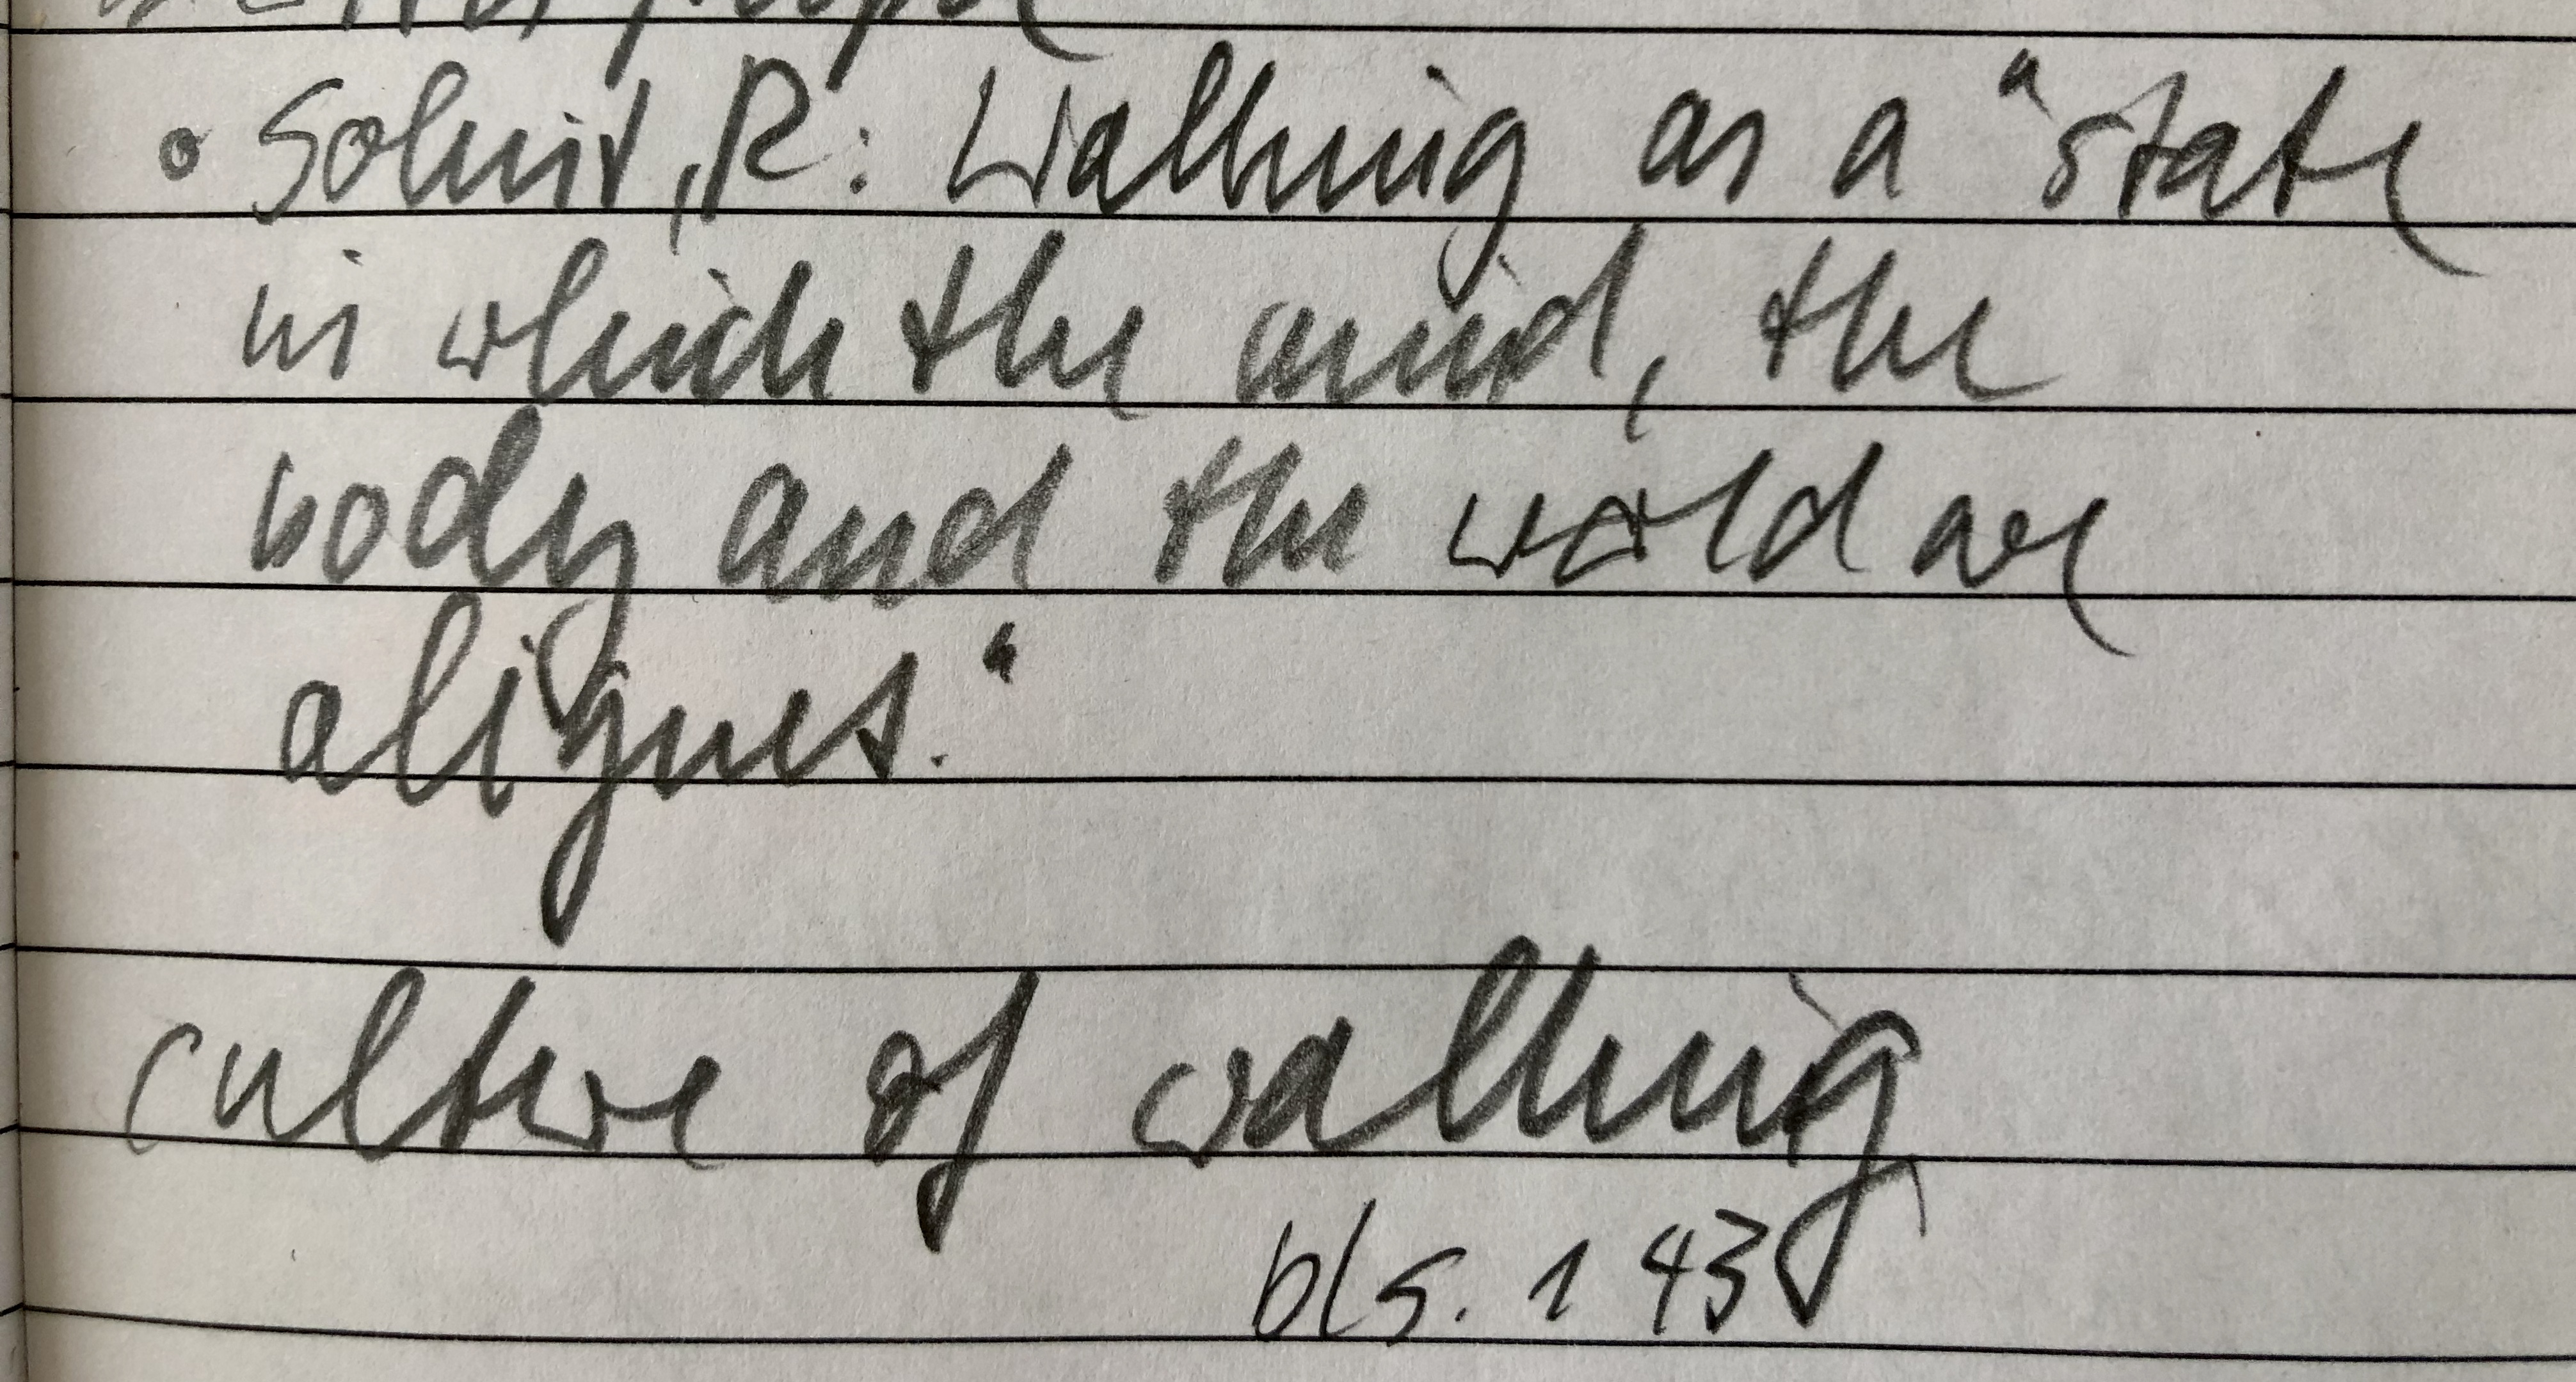 • Solnit, R: Walking as a "state
in which the mind, the
body and the world are
alignes."
culture of walking
bls. 143